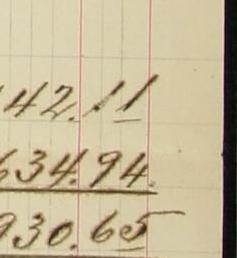 42.11
634.94.
930.65